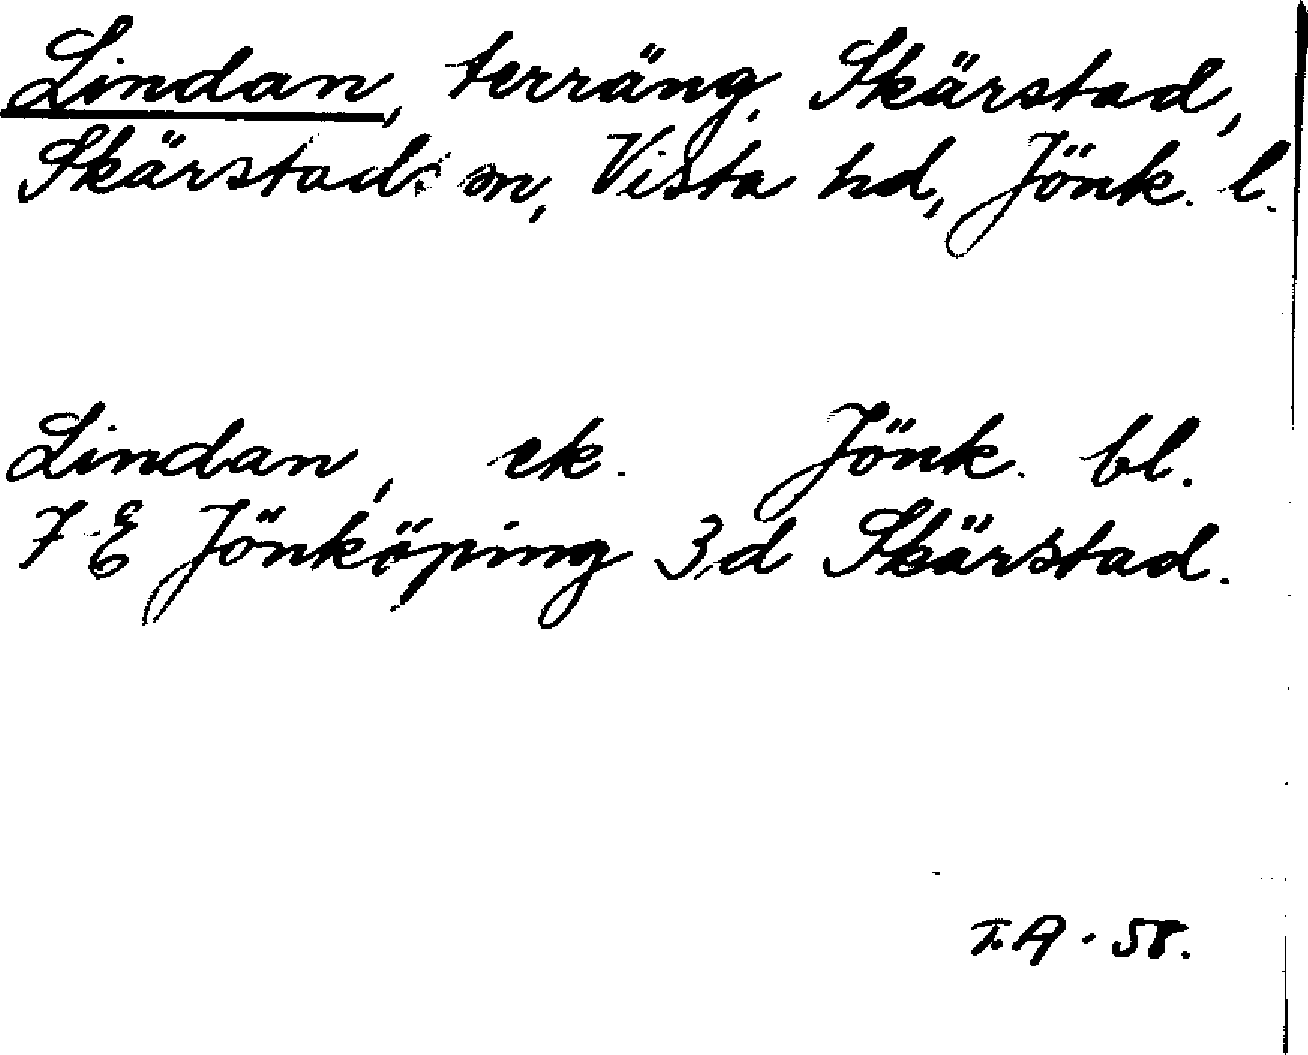 Lindan, terräng, Skärstad,
Skärstads sn, Vista hd, Jönk. l.
Lindan, ek. Jönk. bl.
7 E Jönköping 3d Skärstad.
T.A - 58.